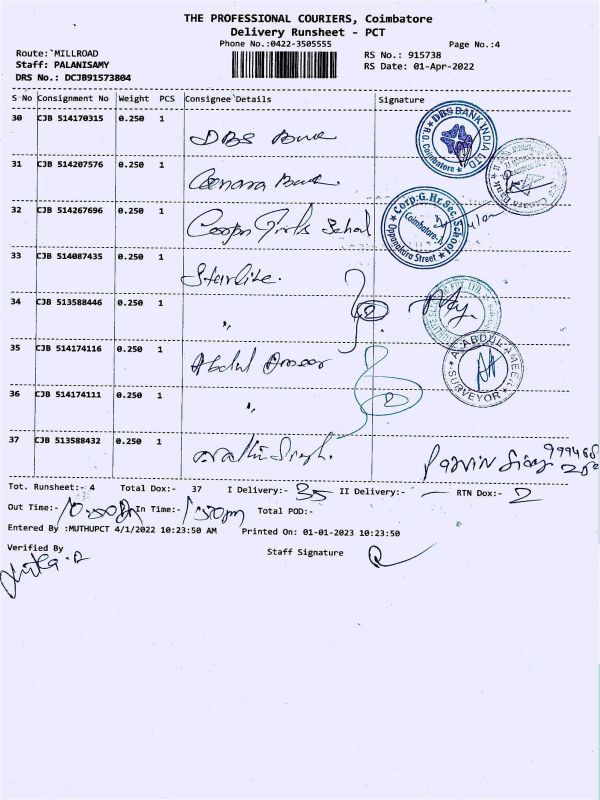 THE PROFESSIONAL COURIERS, Coimbatore
Delivery Runsheet - PCT
Phone No.:0422-3505555
Page No.:4
Route:`MILLROAD
Staff: PALANISAMY
DRS No.: DCJB91573804
RS No.: 915738
RS Date: 01-Apr-2022
S No Consignment No Weight PCS Consignee Details Signature
30 CJB 514170315 0.250 1 DBS Bank
DBS BANK INDIA LTD. R.O. Coimbatore
31 CJB 514207576 0.250 1 Canara Bank
32 CJB 514267696 0.250 1 Corpn Girls School
Corp.G.Hr.Sec.School Coimbatore-1. Oppanakara Street
33 CJB 514087435 0.250 1 Starlite.
34 CJB 513588446 0.250 1 "
2
35 CJB 514174116 0.250 1 Abdul Ameer
A. ABDUL AMEER SURVEYOR
36 CJB 514174111 0.250 1 "
2
37 CJB 513588432 0.250 1 Singh.
Tot. Runsheet:- 4 Total Dox:- 37 I Delivery:- 35 II Delivery:- — RTN Dox:- 2
Out Time:- In Time:- Total POD:-
Entered By :MUTHUPCT 4/1/2022 10:23:50 AM Printed On: 01-01-2023 10:23:50
Verified By
Staff Signature